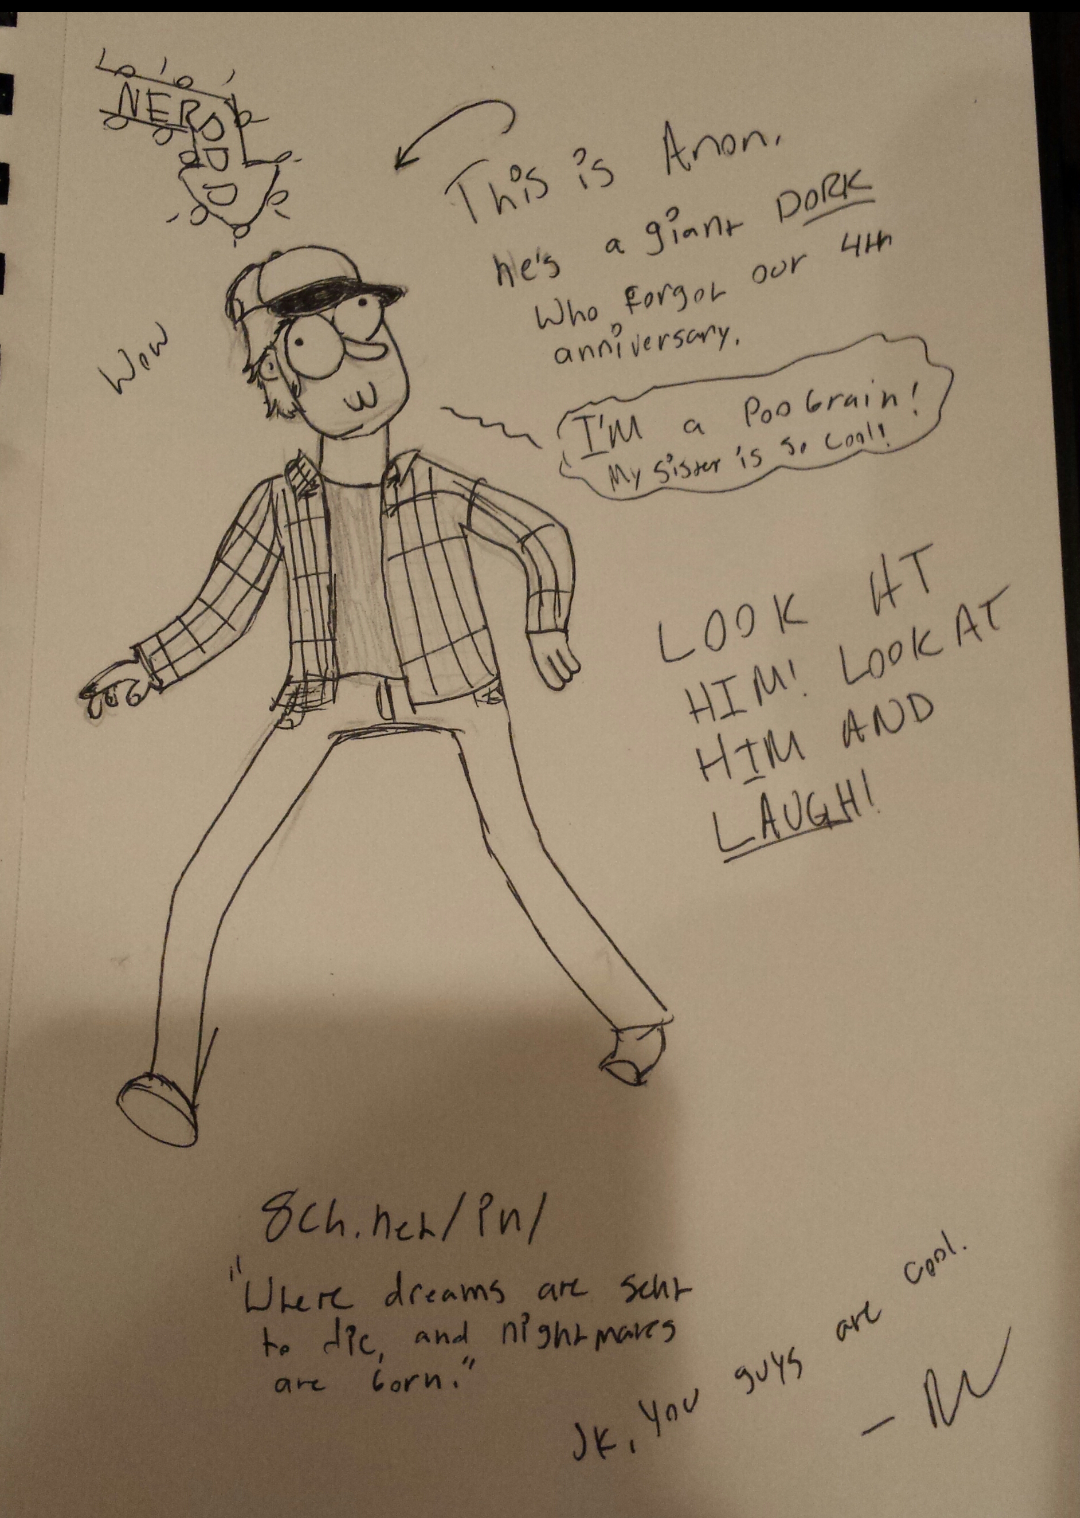 NERD
This is Anon.
he's a giant DORK
who forgot our 4th
anniversary.
Wow
I'M a PooBrain!
My sister is so cool!
LOOK AT
HIM! LOOK AT
HIM AND
LAUGH!
8ch.net/in/
"Where dreams are sent
to die, and nightmares
are born."
JK, you guys are cool.